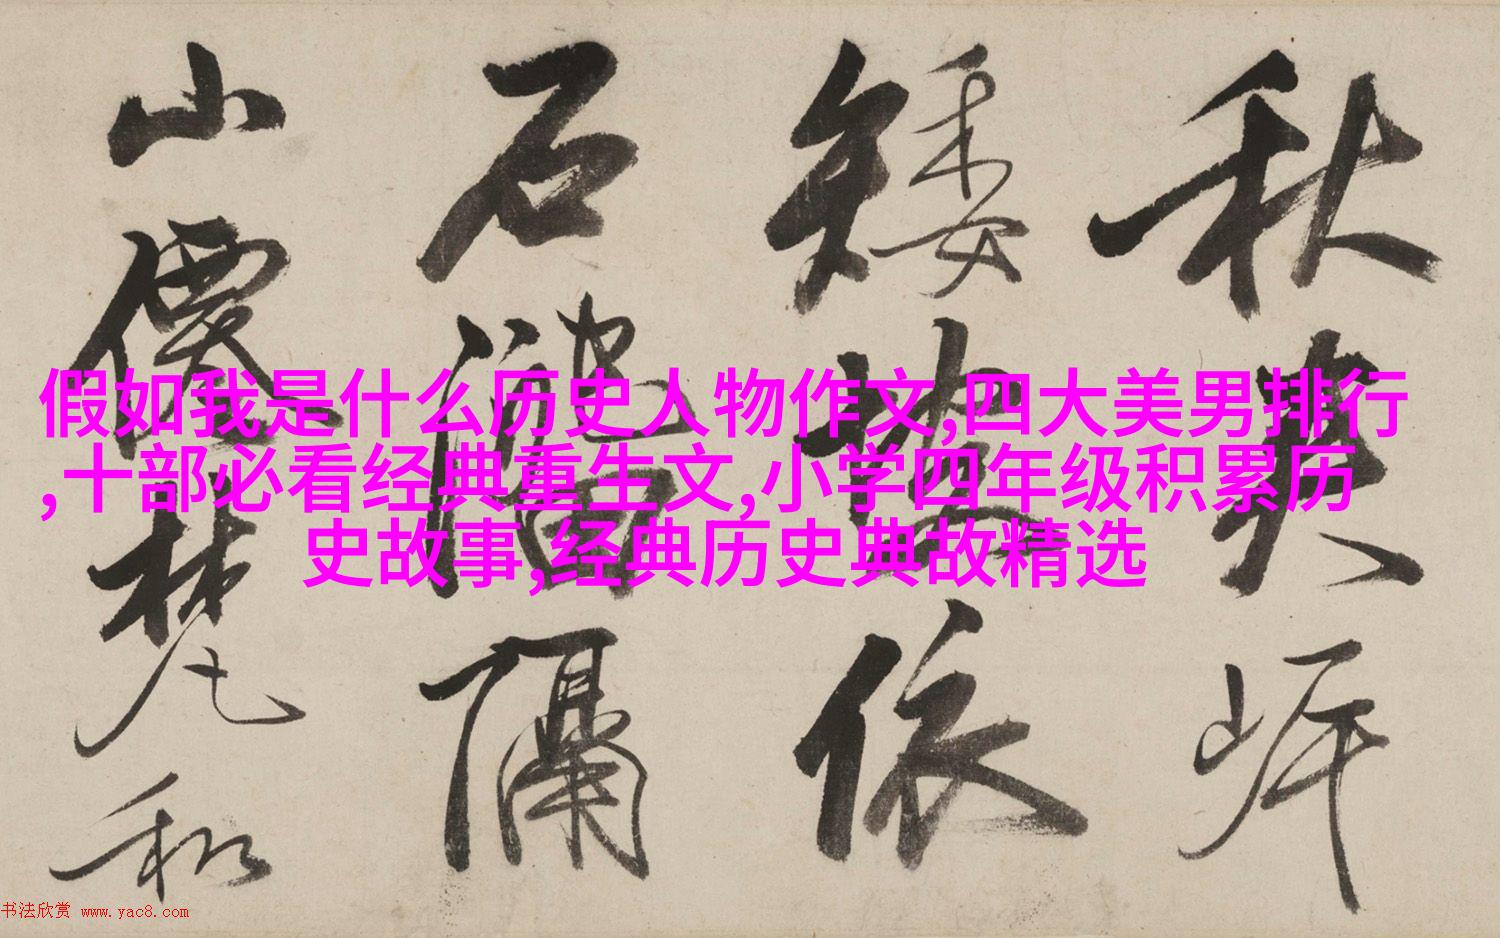 假如我是什么历史人物作文,四大美男排行
,十部必看经典重生文,小学四年级积累历
史故事,经典历史典故精选
秋
矮依
石隔
山僊梵和
书法欣赏 www.yac8.com